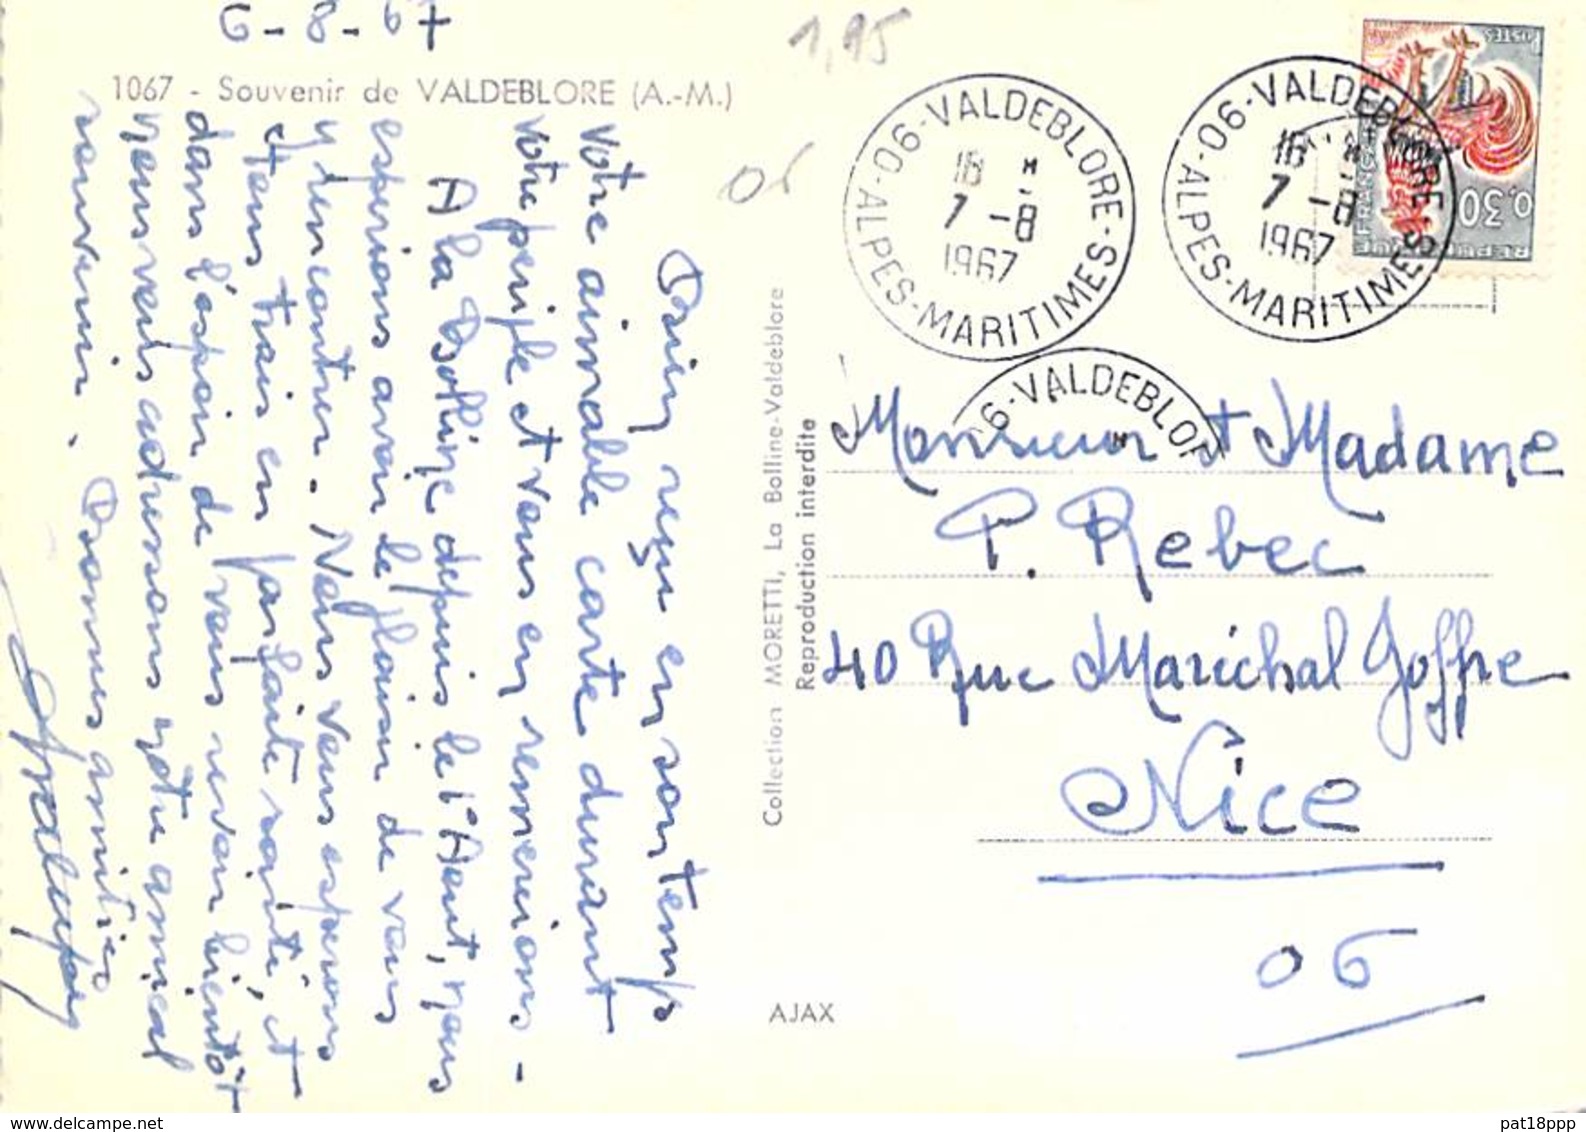 6-8-67
1,95
1067 - Souvenir de VALDEBLORE (A.-M.)
06
Bien reçu en son temps
votre aimable carte durant
votre périple et vous en remercions -
A la Bolline depuis le 1er Aout, nous
espérions avoir le plaisir de vous
y rencontrer. Nous vous espérons
tous trois en parfaite santé, et
dans l'espoir de vous revoir bientôt
nous vous adressons notre amical
souvenir.
Bonnes amitiés
Collection MORETTI, La Bolline-Valdeblore
Reproduction interdite
AJAX
06-VALDEBLORE-ALPES-MARITIMES
16 H
7 -8
1967
06-VALDEBLORE
ALPES-MARITIMES
16 H
7 -8
1967
06-VALDEBLOR
POSTES
0,30
REPUBLIQUE FRANÇAISE
Monsieur et Madame
P. Rebec
40 Rue Maréchal Joffre
Nice
06
pat18ppp